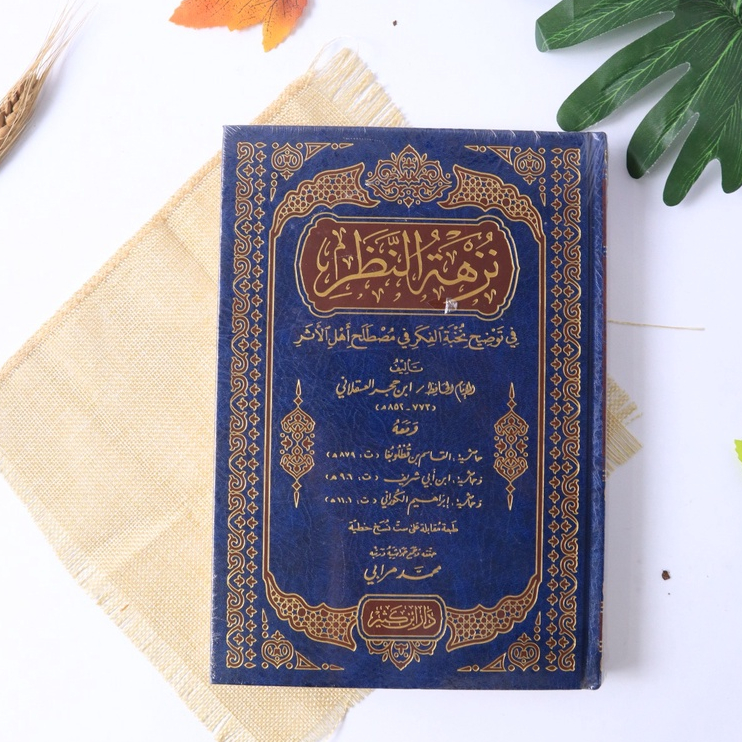 نُزهَةُ النَّظَر
في تَوضيح نُخبَةِ الفِكَر في مُصْطَلَحِ أَهلِ الأَثَر
تأليفُ
الإمام الحافظ / ابن حجر العسقلاني
(٧٧٣-٨٥٢هـ)
ومعَهُ
حاشية: القاسم بن قُطلُوبغا (ت: ٨٧٩هـ)
وحاشية: ابن أبي شريف (ت: ٩٠٦هـ)
وحاشية: إبراهيم الكوراني (ت: ١١٠١هـ)
طبعة مقابلة على ستّ نُسَخ خطيّة
محمد مرابي
دار ابن كثير